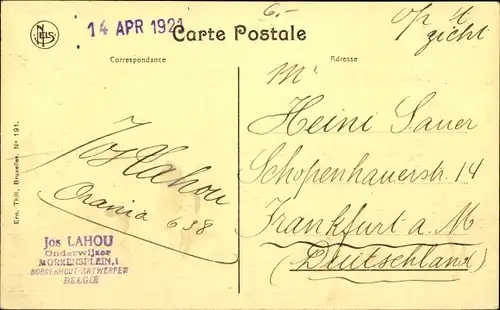 NELS
14 APR 1921
6.-
op 't
zicht
Carte Postale
Correspondance
Adresse
Mr
Heini Sauer
Schopenhauerstr 14
Frankfurt a. M
(Deutschland)
Jos Lahou
Orania 638
Jos LAHOU
Onderwijzer
MORKENSPLEIN,1
BORGERHOUT-ANTWERPEN
BELGIË
Ern. Thill, Bruxelles. No 191.